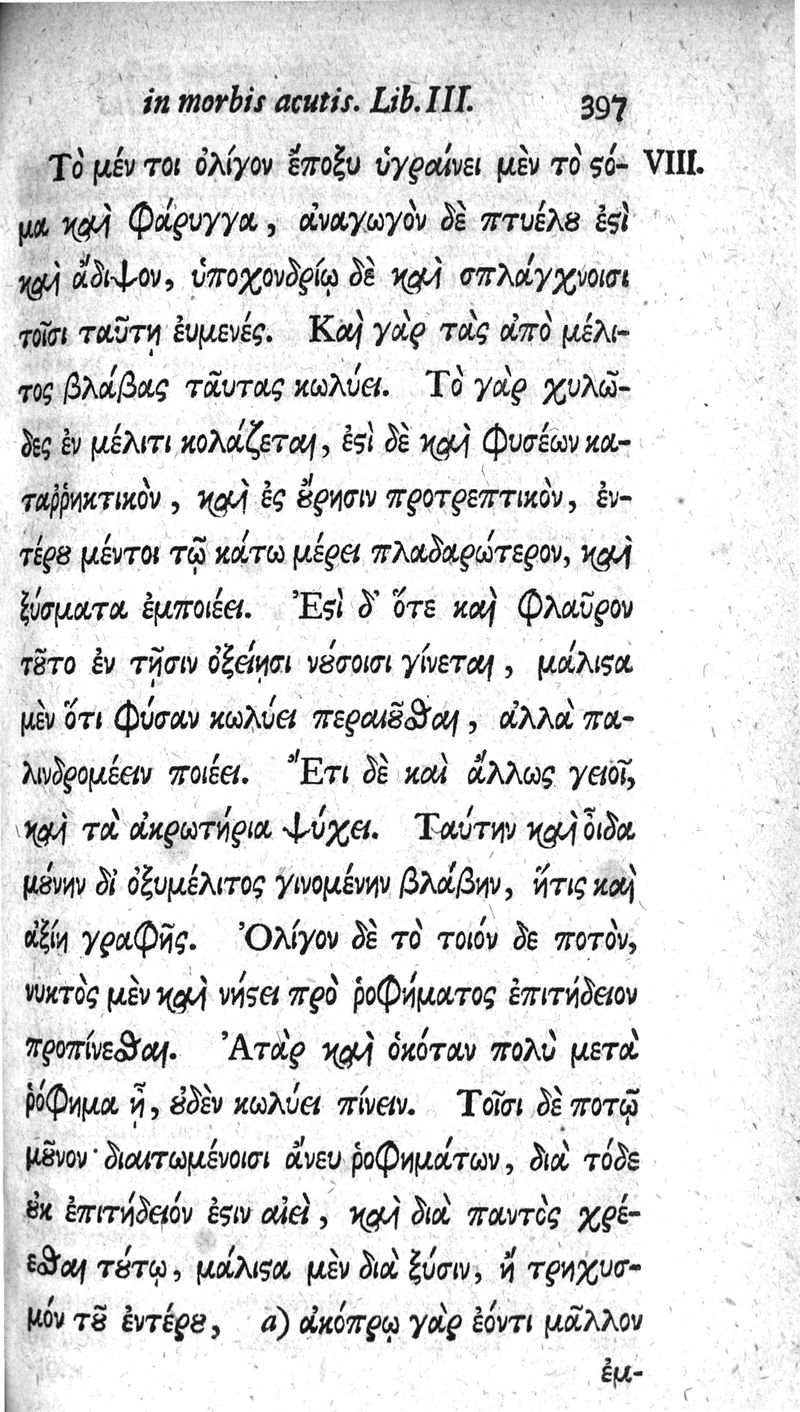 in morbis acutis. Lib. III. 397
Τὸ μέν τοι ὀλίγον ἔποξυ ὑγραίνει μὲν τὸ ϛό- VIII.
μα καὶ φάρυγγα, ἀναγωγὸν δὲ πτυέλȣ ἐϛὶ
καὶ ἄδιψον, ὑποχονδρίῳ δὲ καὶ σπλάγχνοισι
τοῖσι ταῦτῃ ἐυμενές. Καὶ γὰρ τὰς ἀπὸ μέλι-
τος βλάβας ταῦτας κωλύει. Τὸ γὰρ χυλῶ-
δες ἐν μέλιτι κολάζεται, ἐϛὶ δὲ καὶ φυσέων κα-
ταῤῥηκτικὸν, καὶ ἐς ȣ̓́ρησιν προτρεπτικὸν, ἐν-
τέρȣ μέντοι τῷ κάτω μέρει πλαδαρώτερον, καὶ
ξύσματα ἐμποιέει. Ἐϛὶ δ᾽ ὅτε καὶ φλαῦρον
τȣ͂το ἐν τῇσιν ὀξείῃσι νȣ́σοισι γίνεται, μάλιϛα
μὲν ὅτι φύσαν κωλύει περαιȣ͂σθαι, ἀλλὰ πα-
λινδρομέειν ποιέει. Ἔτι δὲ καὶ ἄλλως γειοῖ,
καὶ τὰ ἀκρωτήρια ψύχει. Ταύτην καὶ οἶδα
μȣ́νην δἰ ὀξυμέλιτος γινομένην βλάβην, ἥτις καὶ
ἀξίη γραφῆς. Ὀλίγον δὲ τὸ τοιόν δε ποτὸν,
νυκτὸς μὲν καὶ νήϛει πρὸ ῥοφήματος ἐπιτήδειον
προπίνεσθαι. Ἀτὰρ καὶ ὁκόταν πολὺ μετὰ
ῥόφημα ᾖ, ȣ̓δὲν κωλύει πίνειν. Τοῖσι δὲ ποτῷ
μȣ͂νον· διαιτωμένοισι ἄνευ ῥοφημάτων, διὰ τόδε
ȣ̓κ ἐπιτήδειόν ἐϛιν αἰεὶ, καὶ διὰ παντὸς χρέ-
εσθαι τȣ́τῳ, μάλιϛα μὲν διὰ ξύσιν, ἢ τρηχυσ-
μόν τȣ͂ ἐντέρȣ, a) ἀκόπρῳ γὰρ ἐόντι μᾶλλον
ἐμ-